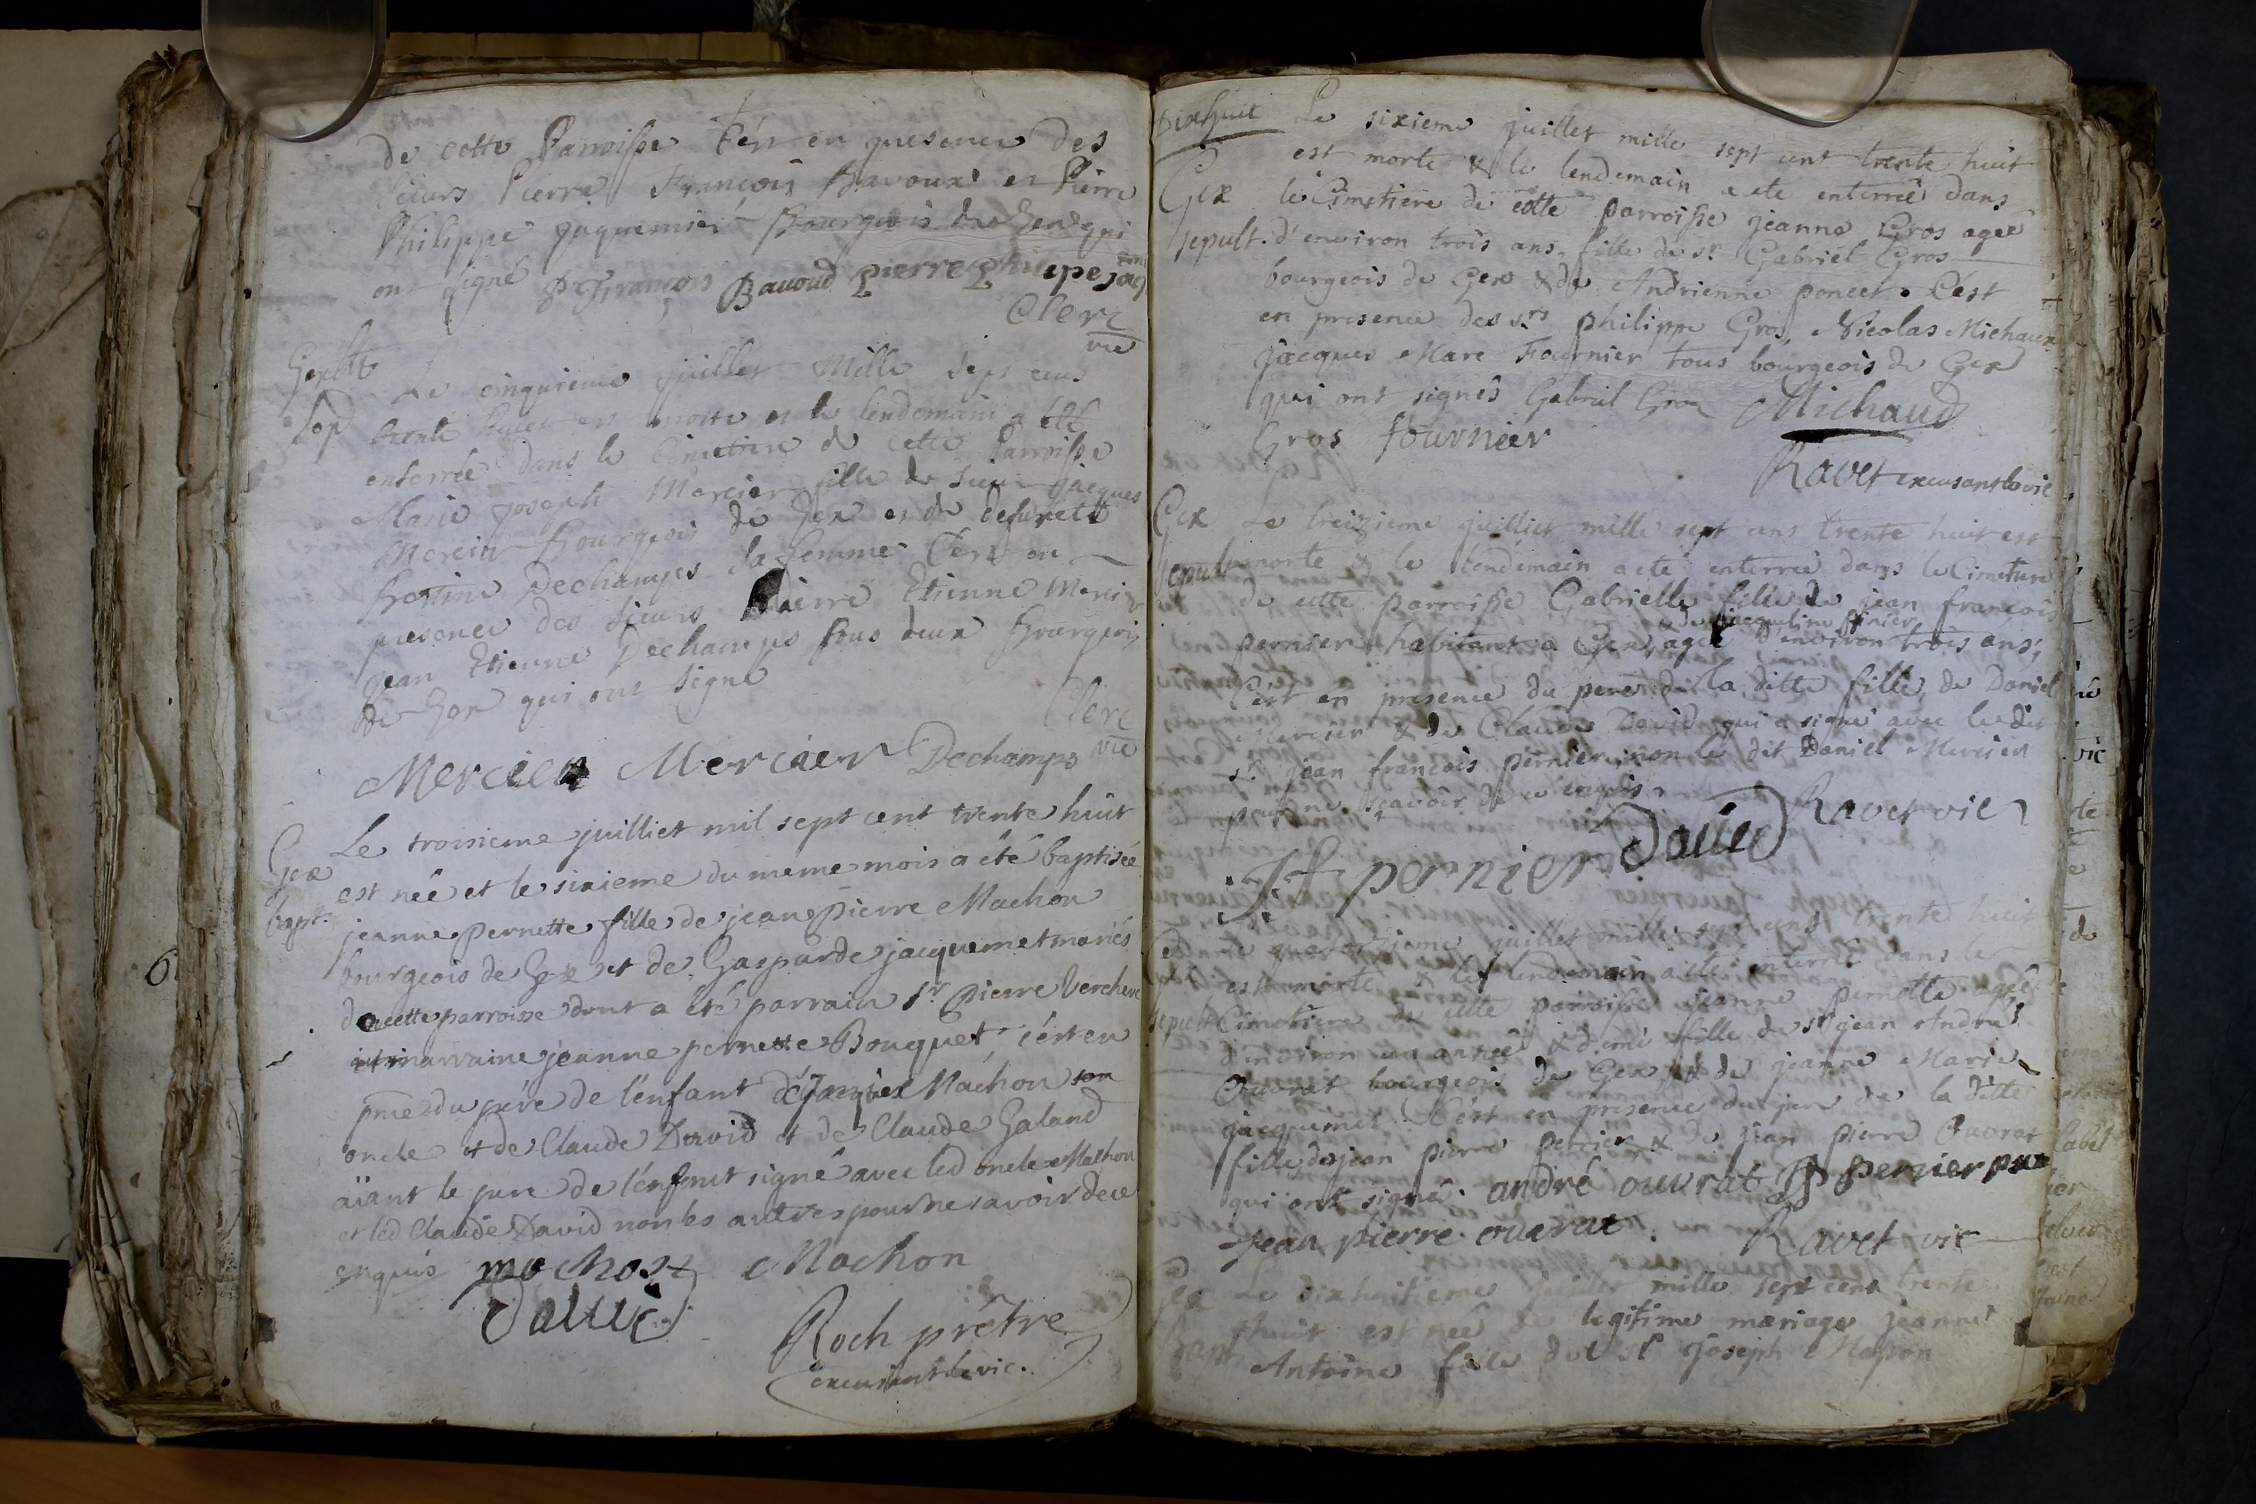 de cette Parroisse C'ést en presence des
sieurs Pierre François Bavoux et Pierre
Philippe Jaquemier Bourgeois de Gex qui
ont signé P françois Bavoud pierre philipe jaq
Clerc
vic
Gex
Sep
Le cinquieme juillet Mille sept cens
trente huict est morte et le lendemain a été
enterrée dans le Cimetiere de cette Parroisse
Marie Joseph Mercier fille de sieur Jacques
Mercier Bourgeois de Gex et de defuncte
Dechamps sa femme C'est en
presence des sieurs Pierre Etienne Mercier
Jean Etienne Dechamps tous deux Bourgeois
de Gex qui ont signé
Clerc
vic
Mercier Mercier Dechamps
Gex
bapt.
Le troisieme juilliet mil sept cent trente huit
est née et le sixieme du meme mois a été baptisée
jeanne pernette fille de jean Pierre Machon
bourgeois de Gex et de Gasparde jacquemet mariés
de cette parroisse dont a été parrain Sr Pierre Verchere
et marraine jeanne pernette Bouquet c'ést en
pnce du pére de l'énfant de Jacques Machon son
oncle et de Claude David et de Claude Galand
aïant le pere de l'énfant signé avec led oncle Machon
et led Claude David non les autres pour ne savoir de ce
enquis mochost Machon
David
Roch prêtre
excusant le vic.
Dixhuit
Gex
sepult.
Le sixieme juillet mille sept cent trente huit
est morte & le lendemain a ete enterrée dans
le Cimetiere de cette parroisse jeanne Gros agée
d'environ trois ans, fille de sr Gabriel Gros
bourgeois de Gex & de Andrienne poncet. C'est
en presence des srs philippe Gros, Nicolas Michaux
Jacques Marc Fournier tous bourgeois de Gex
qui ont signés Gabriel Gros Michaud
Gros fournier
Ravet excusant le vic
Gex
sepult
Le treizieme juilliet mille sept cens trente huit est
morte & le lendemain a eté enterrée dans le Cimetiere
de cette parroisse Gabrielle fille de jean francois
& de jacqueline
pernier habitant a Gex, agée d'environ trois ans;
C'est en presence du pere de la ditte fille, de Daniel
Mercier & de Claude David qui a signé avec le dit
sr jean francois pernier, non le dit Daniel Mercier
pour ne sçavoir de ce enquis.
Ravet vic
J f pernier David
Gex
sepult
Le quatorzieme juillet mille sept cens trente huit
est morte & le lendemain a ete enterrée dans le
Cimetiere de cette parroisse jeanne pernette agée
d'environ un année & demi fille de sr jean André
Ouvrat bourgeois de Gex & de jeanne Marie
jacquemet. C'ést en presence du pere de la ditte
fille, de jean pierre pernier & de jean pierre Ouvrat
qui ont signé. andré ouvrat JP pernier
jean pierre ouvrat. Ravet vic
Gex
bapt
Le dixhuitieme juillet mille sept cent trente
huit est née de legitime mariage jeanne
Antoine fille de sr Joseph